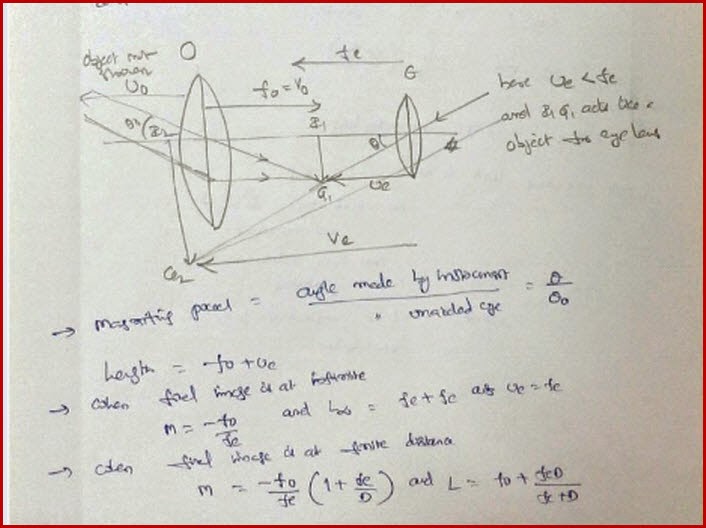 object not
shown
O
u₀
fe
f₀ = v₀
B₁
θ
G₁
ue
ve
here ue < fe
and B₁ G₁ acts like a
object for eye lens
→ magnifying power = angle made by instrument / " unaided eye = θ / θ₀
Length = f₀ + ue
→ when final image is at infinite
m = -f₀/fe and L∞ = fe + fe as ue = fe
→ when final image is at finite distance
m = -f₀/fe (1 + fe/D) and L = f₀ + feD/fe+D